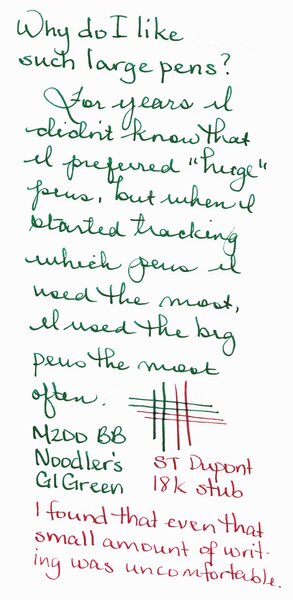 Why do I like
such large pens?
For years I
didn't know that
I preferred "huge"
pens, but when I
started tracking
which pens I
used the most,
I used the big
pens the most
often.
M200 BB
Noodler's
GI Green
ST Dupont
18k stub
I found that even that
small amount of writ-
ing was uncomfortable.